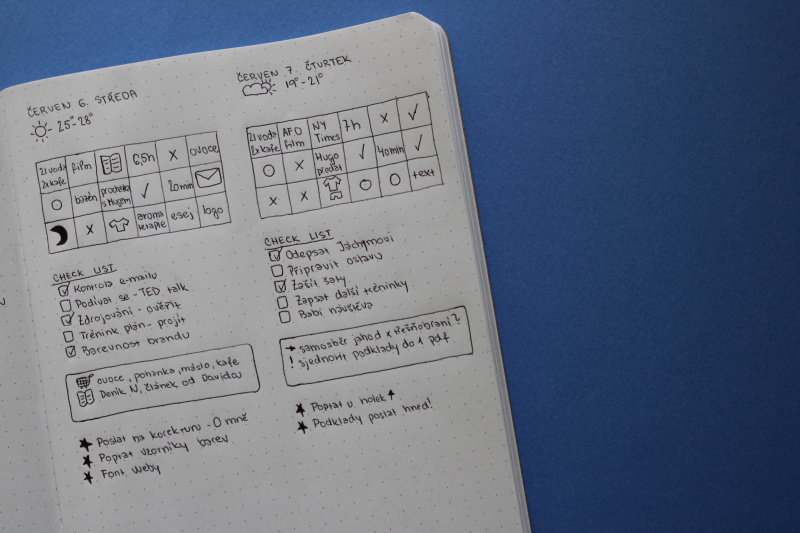 ČERVEN 6. STŘEDA
25°-28°
2l voda 2x kafe
film
6,5h
x
ovoce
bazén
procházka s Hugem
✓
20min
x
aroma terapie
esej
logo
CHECK LIST
Kontrola e-mailu
Podívat se - TED talk
Zdrojování - ověřit
Trénink plán - projít
Barevnost brandu
ovoce, pohanka, máslo, kafe
Deník N, článek od Davida
Poslat na korekturu - O mně
Poptat vzorníky barev
Font weby
ČERVEN 7. ČTVRTEK
19°-21°
2l voda 2x kafe
AFO film
NY Times
7h
x
✓
x
Hugo
✓
40min
✓
x
x
text
CHECK LIST
Odepsat Jáchymovi
Připravit oslavu
Zašít šaty
Zapsat další tréninky
Babi návštěva
→ samosběr jahod x třešňobraní?
! sjednotit podklady do 1 pdf
Poptat u holek
Podklady poslat hned!